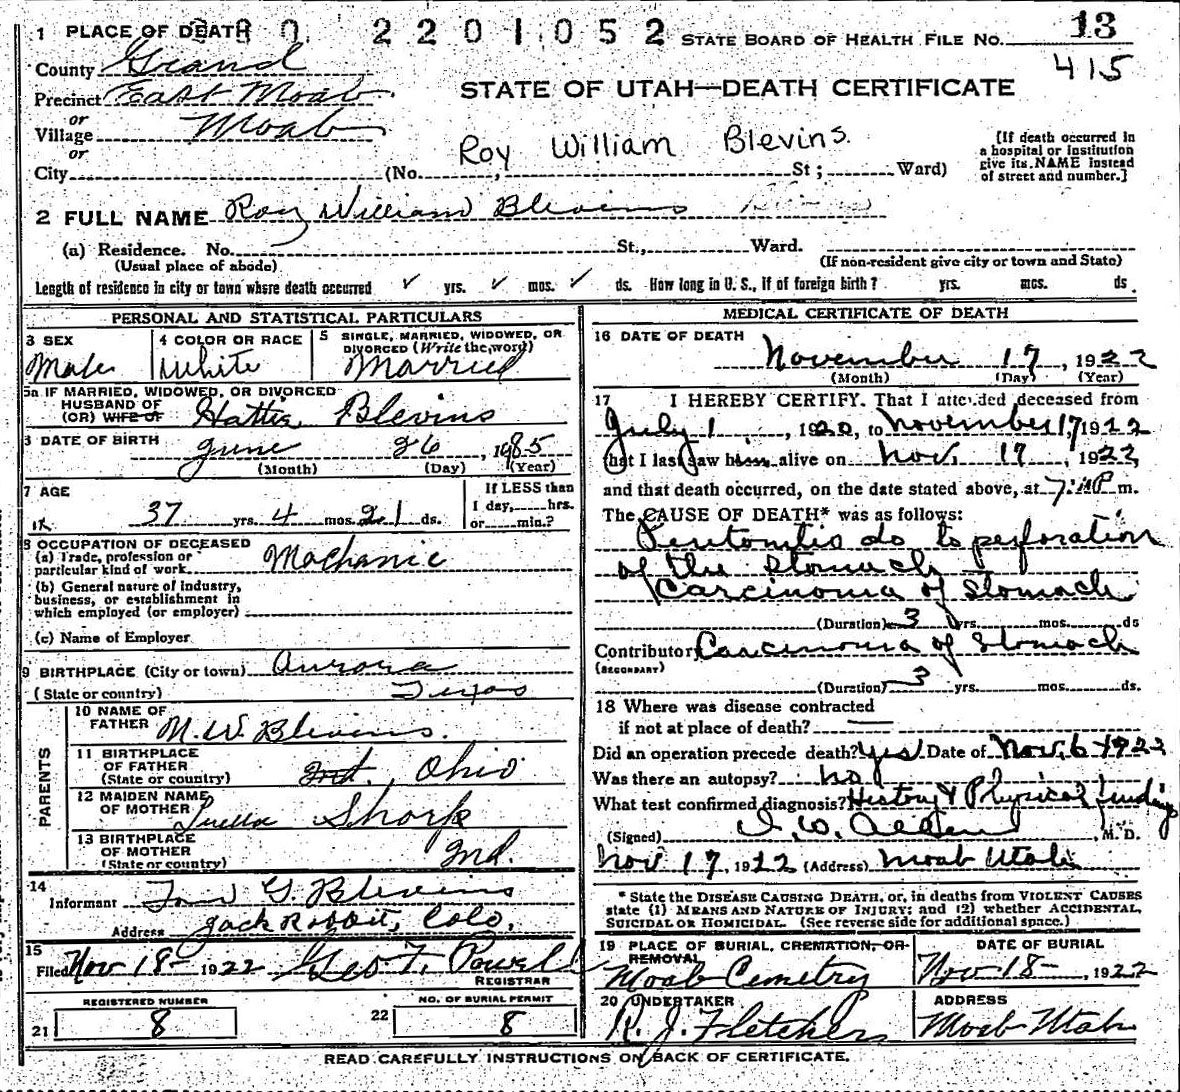 1 PLACE OF DEATH 2201052 STATE BOARD OF HEALTH FILE NO. 13
County Grand 415
Precinct East Moab STATE OF UTAH—DEATH CERTIFICATE
or
Village Moab
or
Roy William Blevins.
City (No. , St; Ward)
[If death occurred in
a hospital or institution
give its NAME instead
of street and number.]
2 FULL NAME Roy William Blevins
(a) Residence. No. St., Ward.
(Usual place of abode) (If non-resident give city or town and State)
Length of residence in city or town where death occurred ✓ yrs. ✓ mos. ✓ ds. How long in U. S., if of foreign birth? yrs. mos. ds.
PERSONAL AND STATISTICAL PARTICULARS
3 SEX
Male
4 COLOR OR RACE
White
5 SINGLE, MARRIED, WIDOWED, OR
DIVORCED (Write the word)
Married
5a IF MARRIED, WIDOWED, OR DIVORCED
HUSBAND OF
(OR) WIFE OF Hattie Blevins
6 DATE OF BIRTH
June 26, 1885
(Month) (Day) (Year)
7 AGE
37 yrs. 4 mos. 21 ds.
If LESS than
1 day, hrs.
or min.?
8 OCCUPATION OF DECEASED
(a) Trade, profession or
particular kind of work Machanic
(b) General nature of industry,
business, or establishment in
which employed (or employer)
(c) Name of Employer
9 BIRTHPLACE (City or town) Aurora
(State or country) Texas
PARENTS
10 NAME OF
FATHER M. W. Blevins.
11 BIRTHPLACE
OF FATHER
(State or country) Ohio
12 MAIDEN NAME
OF MOTHER Luella Shork
13 BIRTHPLACE
OF MOTHER
(State or country) Ind.
14
Informant G. Blevins
Address Jack Rabbit, Colo.
15
Filed Nov 18- 1922 Geo F. Powell
REGISTRAR
REGISTERED NUMBER
21 8
NO. OF BURIAL PERMIT
22 8
MEDICAL CERTIFICATE OF DEATH
16 DATE OF DEATH
November 17, 1922
(Month) (Day) (Year)
17 I HEREBY CERTIFY. That I attended deceased from
July 1, 1920, to November 17 1922
that I last saw him alive on Nov. 17, 1922
and that death occurred, on the date stated above, at 7: P m.
The CAUSE OF DEATH* was as follows:
Peritonitis do to perforation
of the Stomach
Carcinoma of Stomach
(Duration) 3 yrs. mos. ds
Contributory Carcinoma of Stomach
(SECONDARY)
(Duration) 3 yrs. mos. ds.
18 Where was disease contracted
if not at place of death? —
Did an operation precede death? Yes Date of Nov. 6 1922
Was there an autopsy? no
What test confirmed diagnosis? History & Physical finding
(Signed) M. D.
Nov 17, 1922 (Address) Moab Utah
* State the DISEASE CAUSING DEATH, or, in deaths from VIOLENT CAUSES
state (1) MEANS AND NATURE OF INJURY; and (2) whether ACCIDENTAL,
SUICIDAL OR HOMICIDAL. (See reverse side for additional space.)
19 PLACE OF BURIAL, CREMATION, OR
REMOVAL
Moab Cemetry
DATE OF BURIAL
Nov 18-, 1922
20 UNDERTAKER
R. J. Fletcher
ADDRESS
Moab Utah
READ CAREFULLY INSTRUCTIONS ON BACK OF CERTIFICATE.